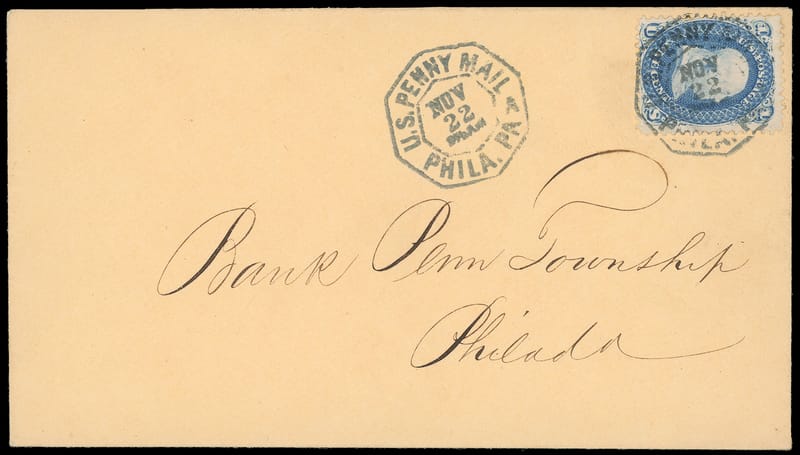 U.S. PENNY MAIL
NOV
22
PHILA. PA
PENNY
NOV
22
U.S. POSTAGE
Bank Penn Township
Philada